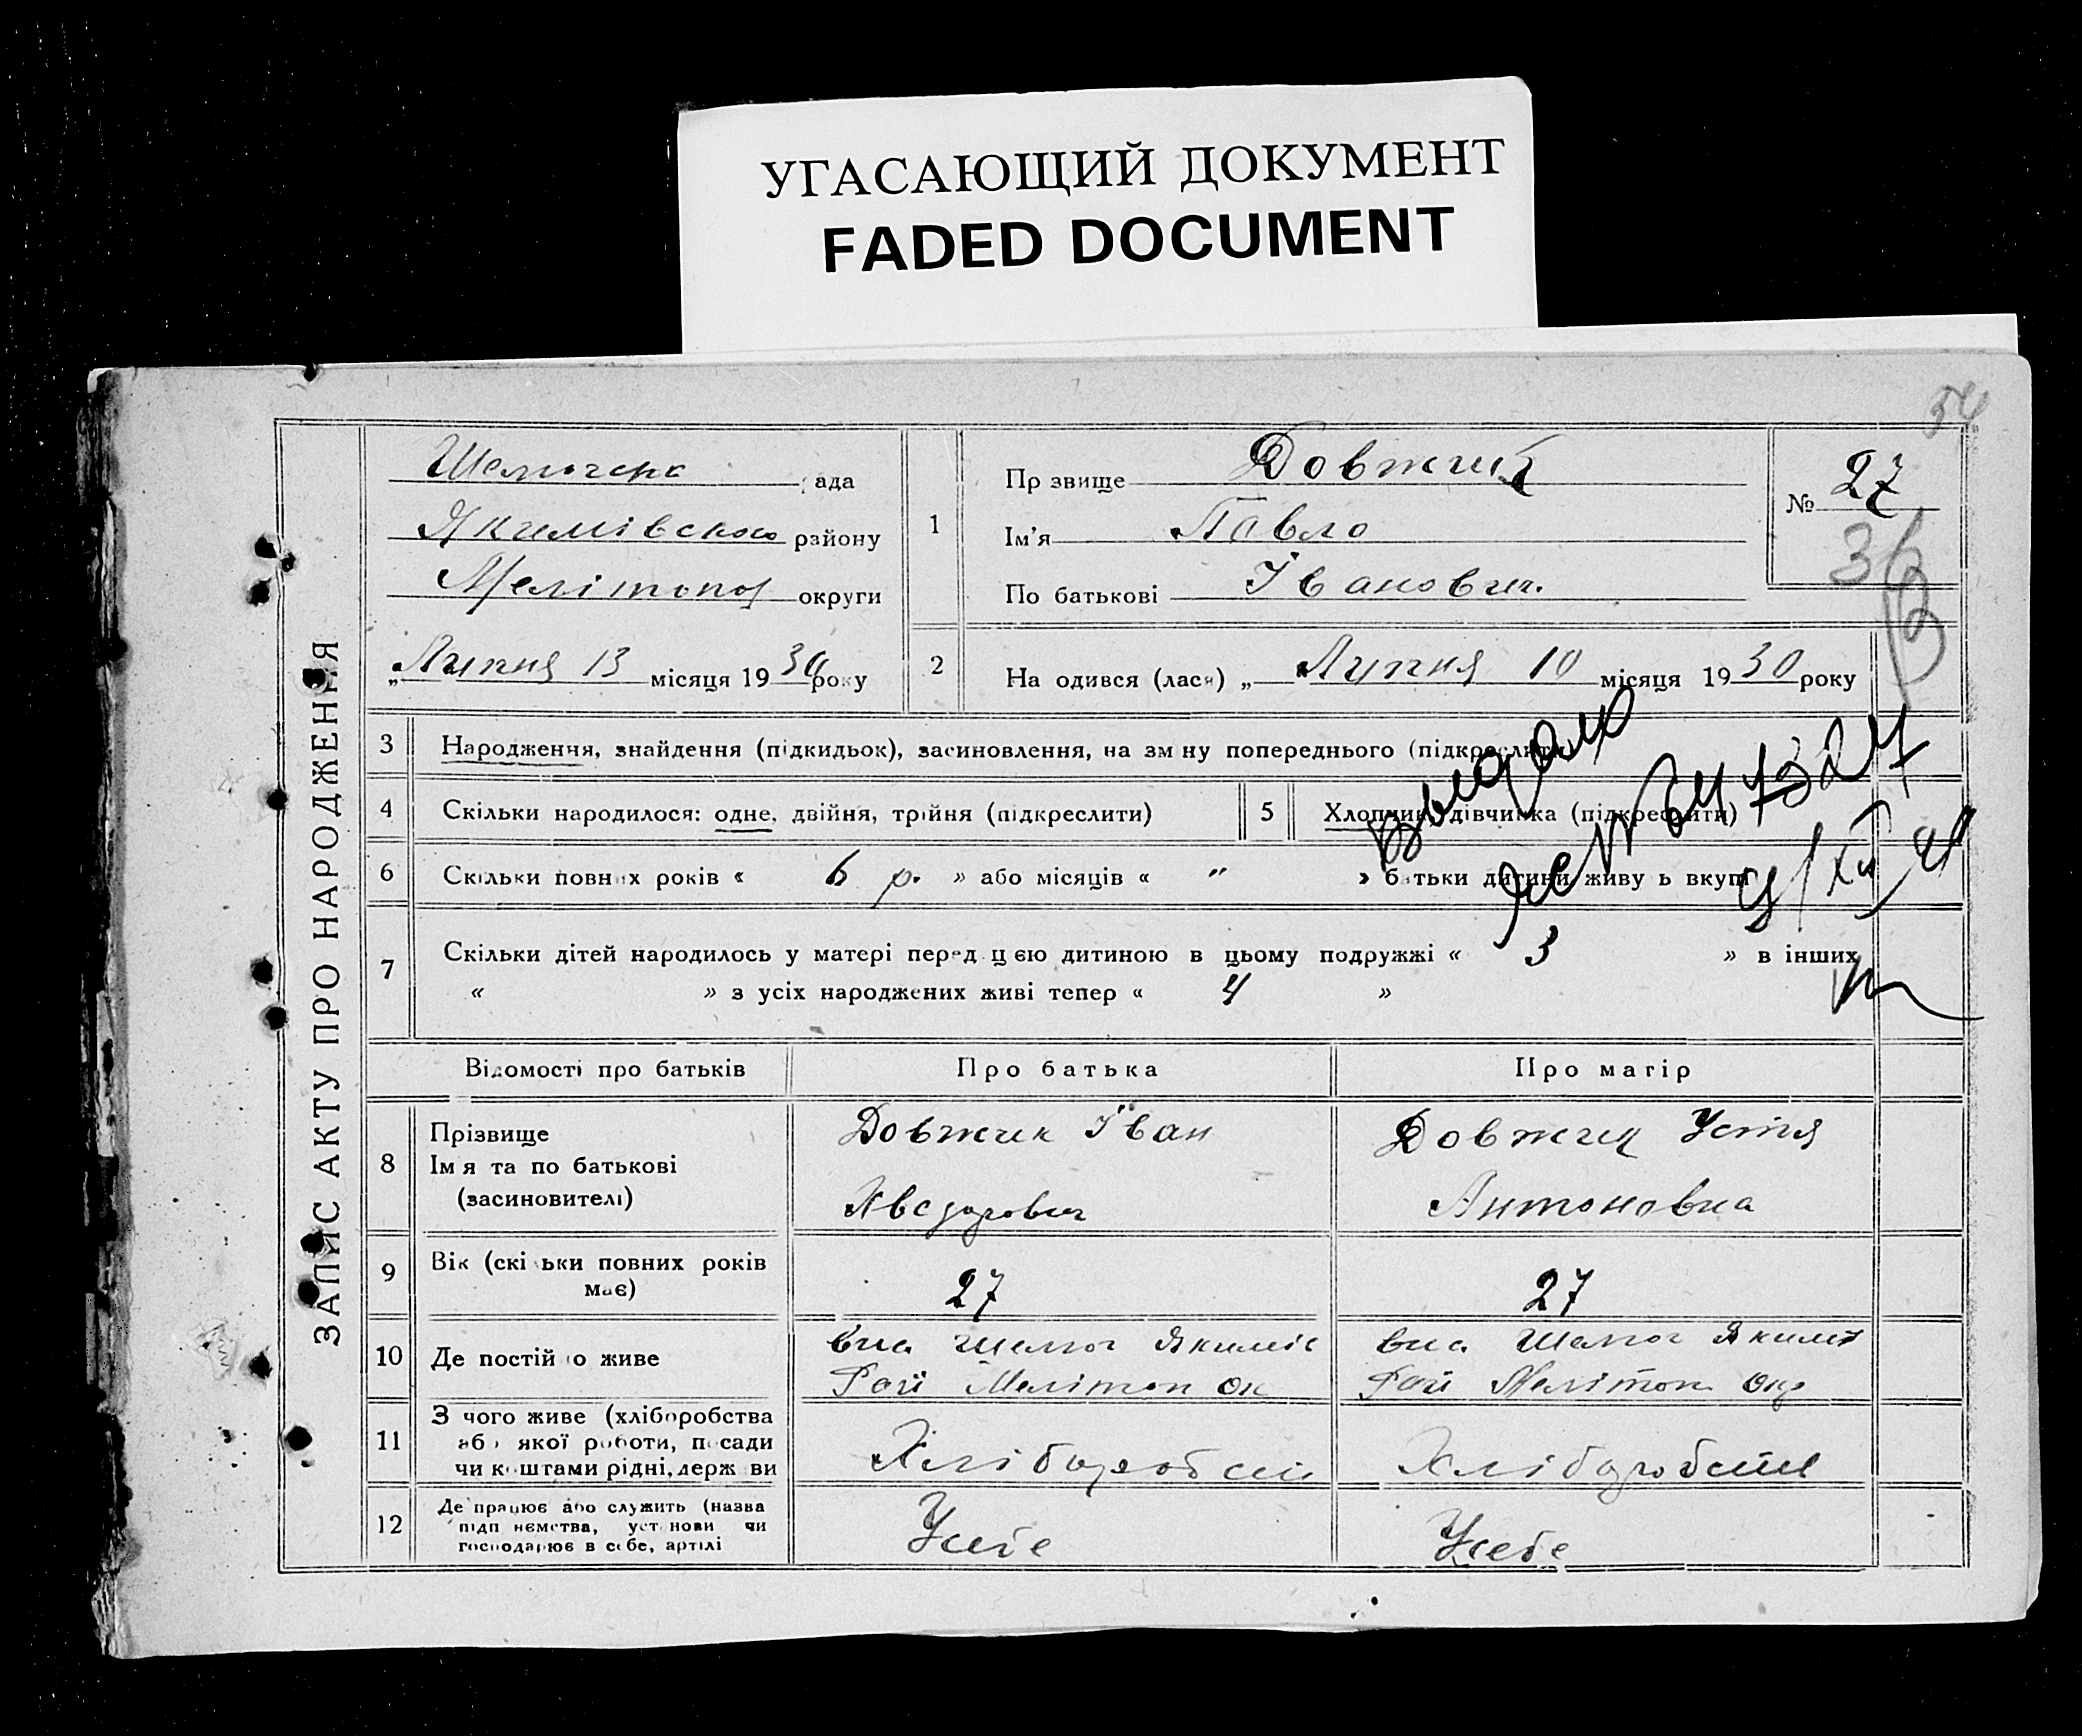 УГАСАЮЩИЙ ДОКУМЕНТ
FADED DOCUMENT
54
ЗАПИС АКТУ ПРО НАРОДЖЕННЯ
ада
Якимівського району
Мелітопол округи
„Липня 13 місяця 1930 року
1
Пр звище Довжик
Ім'я Павло
По батькові Іванович.
№ 27
36
2
На одився (лася) „ Липня 10 місяця 1930 року
3
Народження, знайдення (підкидьок), засиновлення, на зм ну попереднього (підкреслити)
4
Скільки народилося: одне, двійня, трійня (підкреслити)
5
Хлопчик, дівчинка (підкреслити)
6
Скільки повних років « 6 р. » або місяців « " » батьки дитини живу ь вкупі
7
Скільки дітей народилось у матері перед цією дитиною в цьому подружжі « 3 » в інших
« » з усіх народжених живі тепер « 4 »
Відомості про батьків
Про батька
Про матір
8
Прізвище
Ім я та по батькові
(засиновителі)
Довжик Іван
Довжик Устя
Антоновна
9
Вік (скі ьки повних років
має)
27
27
10
Де постійно живе
Якимів
Рай Мелітоп Ок
Якимів
Рай Мелітоп Окр
11
З чого живе (хліборобства
або якої роботи, посади
чи коштами рідні, держ ви
Хліборобств
Хліборобств
12
Де працює або служить (назва
підп иємства, установи чи
господарює в себе, артілі
Усебе
Усебе